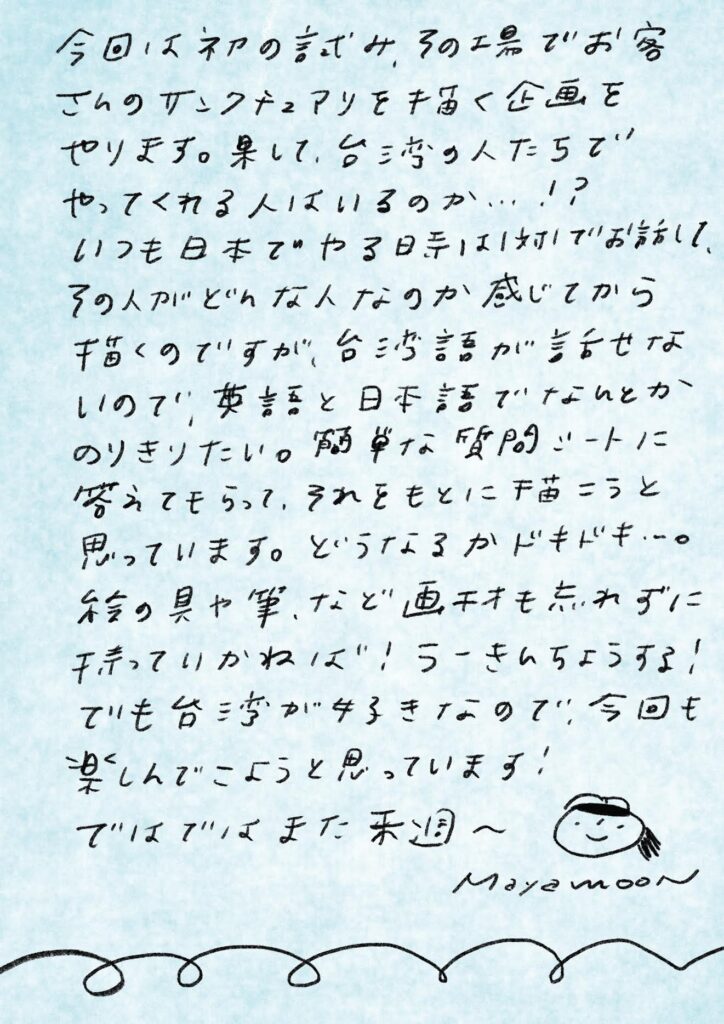 今回は初の試み、その場でお客
さんのサンクチュアリを描く企画を
やります。果して、台湾の人たちで
やってくれる人はいるのか…!?
いつも日本でやる時は1対1でお話して、
その人がどんな人なのか感じてから
描くのですが、台湾語が話せな
いので、英語と日本語でなんとか
のりきりたい。簡単な質問シートに
答えてもらって、それをもとに描こうと
思っています。どうなるかドキドキ…。
絵の具や筆、など画材も忘れずに
持っていかねば!うーきんちょうする!
でも台湾が好きなので、今回も
楽しんでこようと思っています!
ではではまた来週〜
Mayamoon